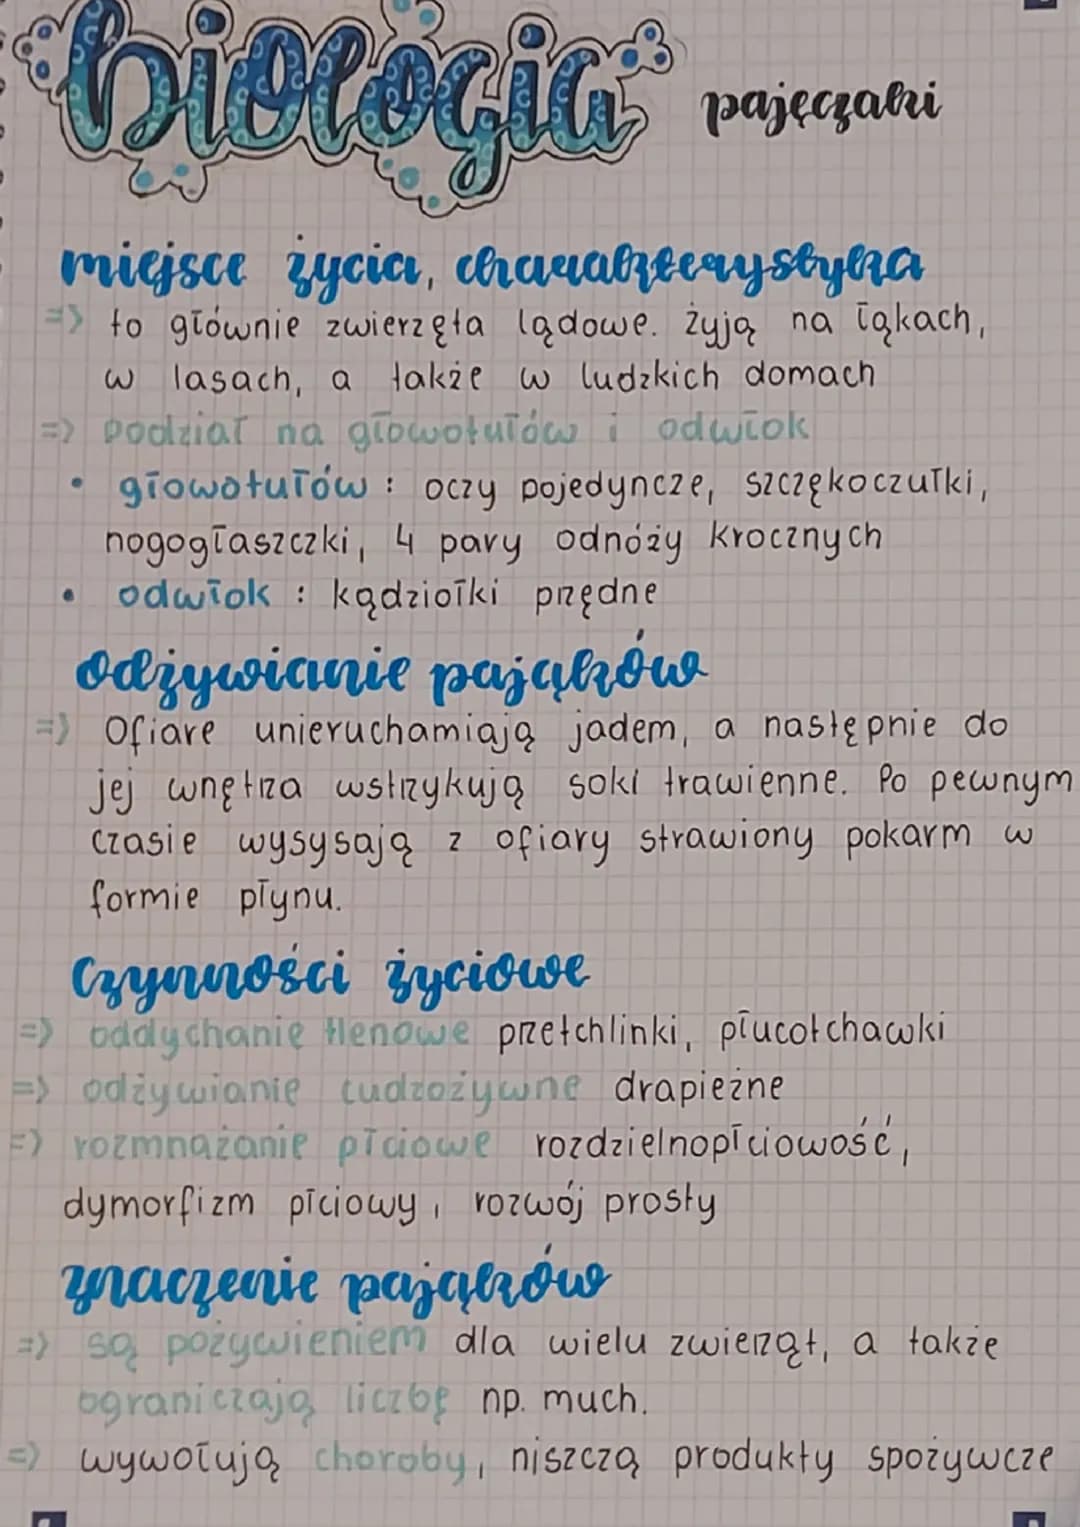 biologia pajęczaki
miejsce życia, charakterystyka
=> to głównie zwierzęta lądowe. żyją na łąkach,
w lasach, a także w ludzkich domach
=> podział na głowotułów i odwłok
• głowotułów : oczy pojedyncze, szczękoczułki,
nogogłaszczki, 4 pary odnóży krocznych
• odwłok : kądziołki przędne
odżywianie pająków
=> Ofiare unieruchamiają jadem, a następnie do
jej wnętrza wstrzykują soki trawienne. Po pewnym
czasie wysysają z ofiary strawiony pokarm w
formie płynu.
Czynności życiowe
=> oddychanie tlenowe przetchlinki, płucotchawki
=> odżywianie cudzożywne drapieżne
=> rozmnażanie płciowe rozdzielnopłciowość,
dymorfizm płciowy, rozwój prosty
znaczenie pająków
=> są pożywieniem dla wielu zwierząt, a także
ograniczają liczbę np. much.
=> wywołują choroby, niszczą produkty spożywcze